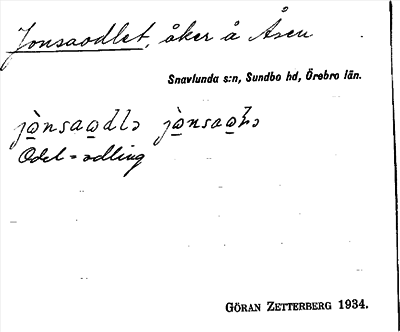 Jonsaodlet, åker å Åsen
Snavlunda s:n, Sundbo hd, Örebro län.
jò̲nsao̲dlə
Odel = odling
GÖRAN ZETTERBERG 1934.